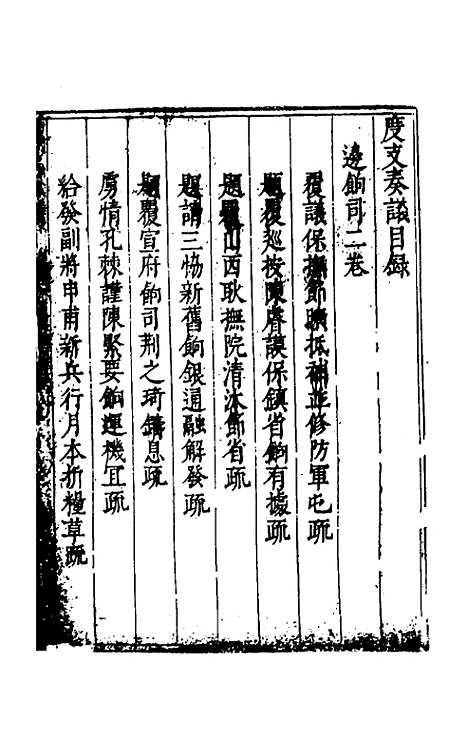 度支奏議目録
邊餉司二卷
覆議保撫節曠抵補並修防軍屯疏
題覆巡按陳睿謨保鎮省餉有據疏
題覆山西耿撫院清汰節省疏
題請三協新舊餉銀通融解發疏
題覆宣府餉司荆之琦鑄息疏
虜情孔棘謹陳緊要餉運機宜疏
給發副將申甫新兵行月本折糧草疏